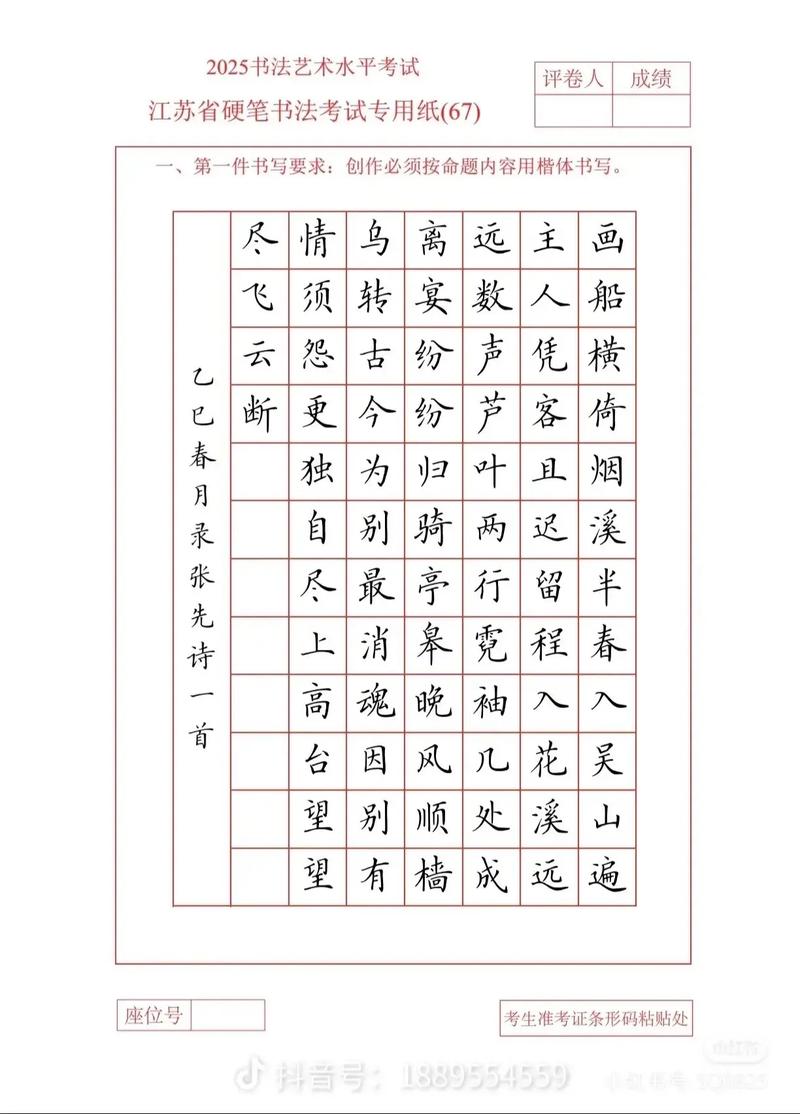 2025书法艺术水平考试
江苏省硬笔书法考试专用纸(67)
评卷人 成绩
一、第一件书写要求：创作必须按命题内容用楷体书写。
画船横倚烟溪半春入吴山遍
主人凭客且迟留程入花溪远
远数声芦叶两行霓袖几处成
离宴纷纷归骑亭皋晚风顺樯
乌转古今为别最消魂因别有
情须怨更独自尽上高台望望
尽飞云断
乙巳春月录张先诗一首
座位号
考生准考证条形码粘贴处
抖音号：1889554559
小红书